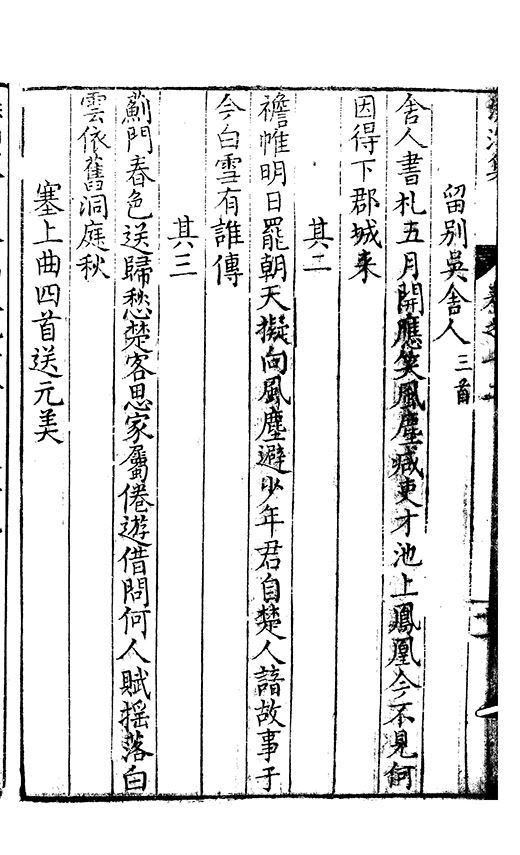 留别吳舍人三首
舍人書札五月開應笑風塵减吏才池上鳳凰今不見何
因得下郡城来
其二
襜帷明日罷朝天擬向風塵避少年君自楚人諳故事于
今白雪有誰傳
其三
薊門春色送歸愁楚客思家屬倦遊借問何人賦摇落白
雲依舊洞庭秋
塞上曲四首送元美